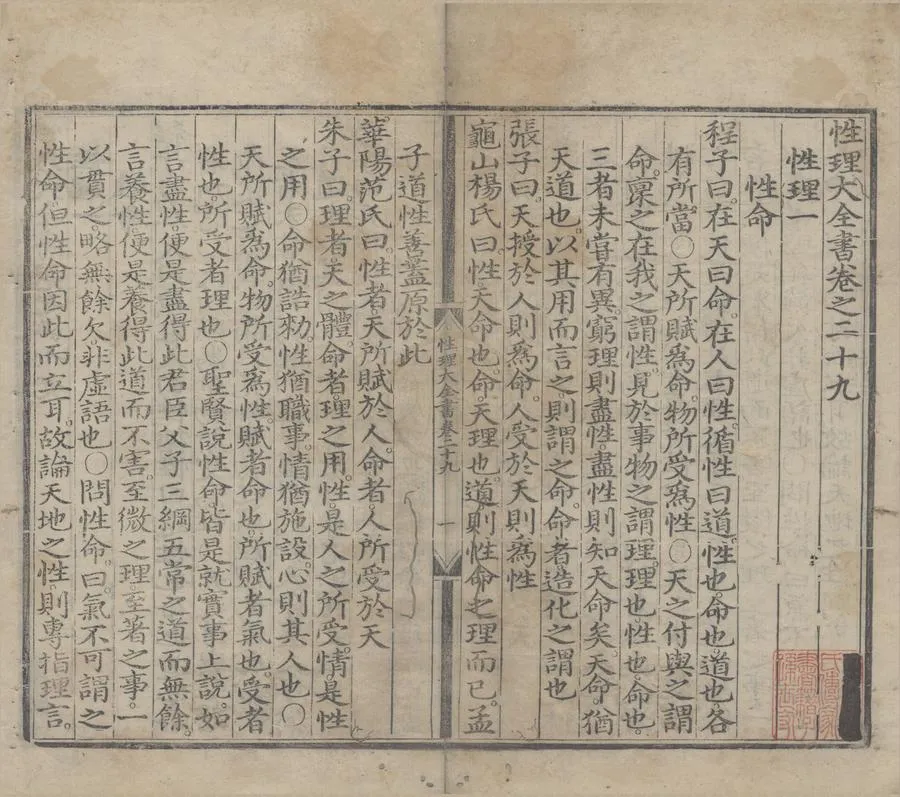 性理大全書卷之二十九
性理一
性命
程子曰。在天曰命。在人曰性。循性曰道。性也。命也。道也。各
有所當○天所賦爲命。物所受爲性○天之付與之謂
命。稟之在我之謂性。見於事物之謂理。理也。性也。命也。
三者未嘗有異。窮理則盡性。盡性則知天命矣。天命。猶
天道也。以其用而言之。則謂之命。命者造化之謂也
張子曰。天授於人則爲命。人受於天則爲性
龜山楊氏曰。性。天命也。命。天理也。道則性命之理而已。孟
性理大全書卷二十九
一
子道性善。蓋原於此
華陽范氏曰。性者。天所賦於人。命者。人所受於天
朱子曰。理者。天之體。命者。理之用。性。是人之所受。情。是性
之用○命猶誥勑。性猶職事。情猶施設。心則其人也○
天所賦爲命。物所受爲性。賦者命也。所賦者氣也。受者
性也。所受者理也○聖賢說性命。皆是就實事上說。如
言盡性。便是盡得此君臣父子三綱五常之道而無餘。
言養性。便是養得此道而不害。至微之理。至著之事。一
以貫之。略無餘欠。非虛語也○問性命。曰。氣不可謂之
性命。但性命因此而立耳。故論天地之性。則專指理言。